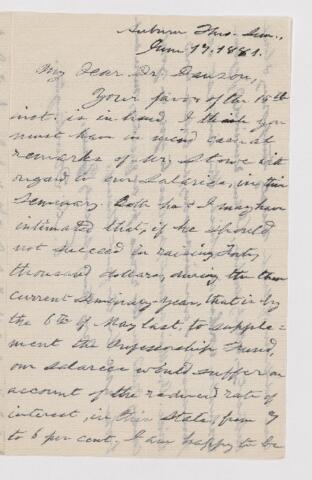 Auburn Theo. Sem.,
June 17, 1881.
My dear Dr.
Your favor of the 15th
inst. is in hand. I think you
must have in mind casual
remarks of Mr. Stowe with
regard to our salaries, in this
Seminary. Both he & I may have
intimated that, if he should
not succeed in raising forty
thousand dollars, during the then
current Seminary-year, that is by
the 6th of May last, to supple=
ment the Professorship Fund,
our salaries would suffer on
account of the reduced rate of
interest, in this State, from 7
to 6 per cent. I am happy to be